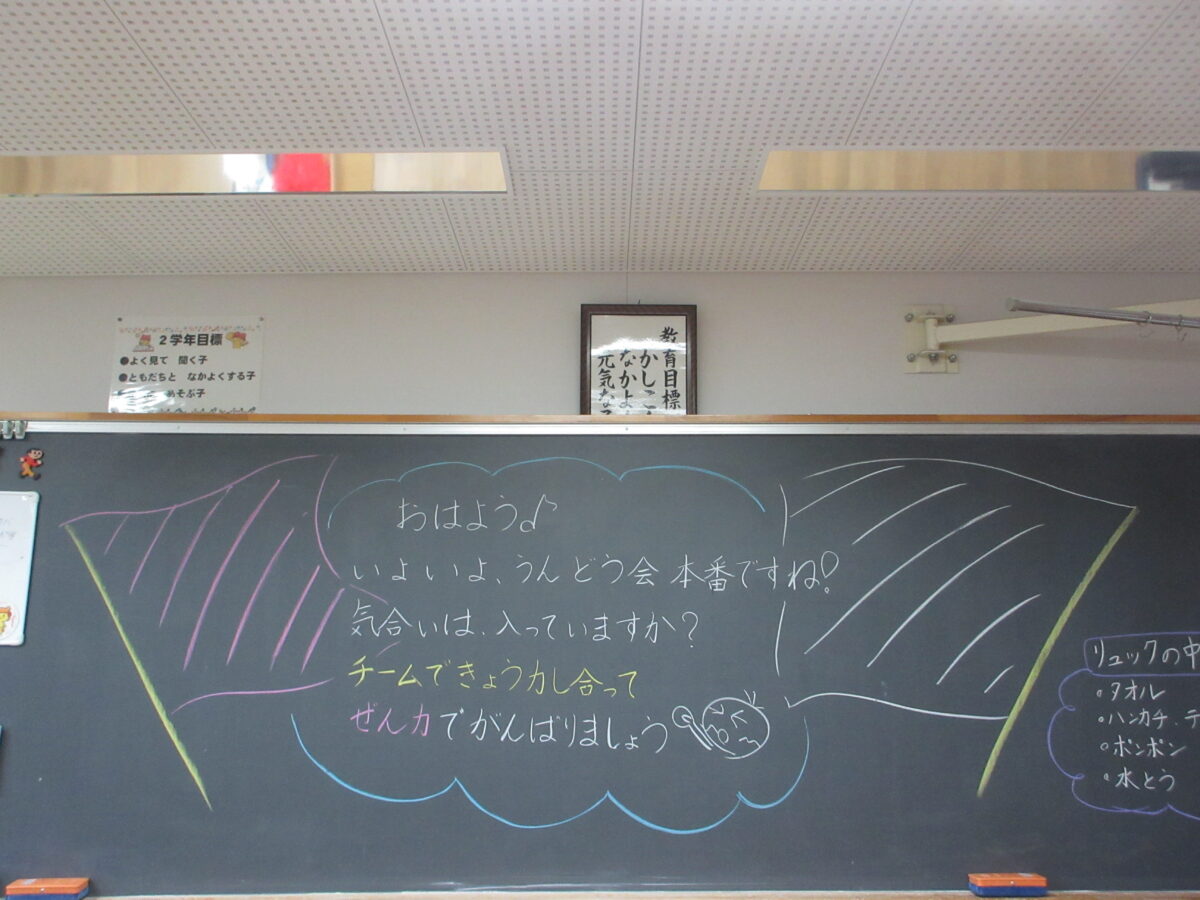 2学年目標
●よく見て 聞く子
●ともだちと なかよくする子
あそぶ子
教育目標
かしこ
なかよ
元気な
おはよう♪
いよいよ、うんどう会 本番ですね!
気合いは、入っていますか?
チームできょう力し合って
ぜん力でがんばりましょう
リュックの中
・タオル
・ハンカチ・テ
・ポンポン
・水とう